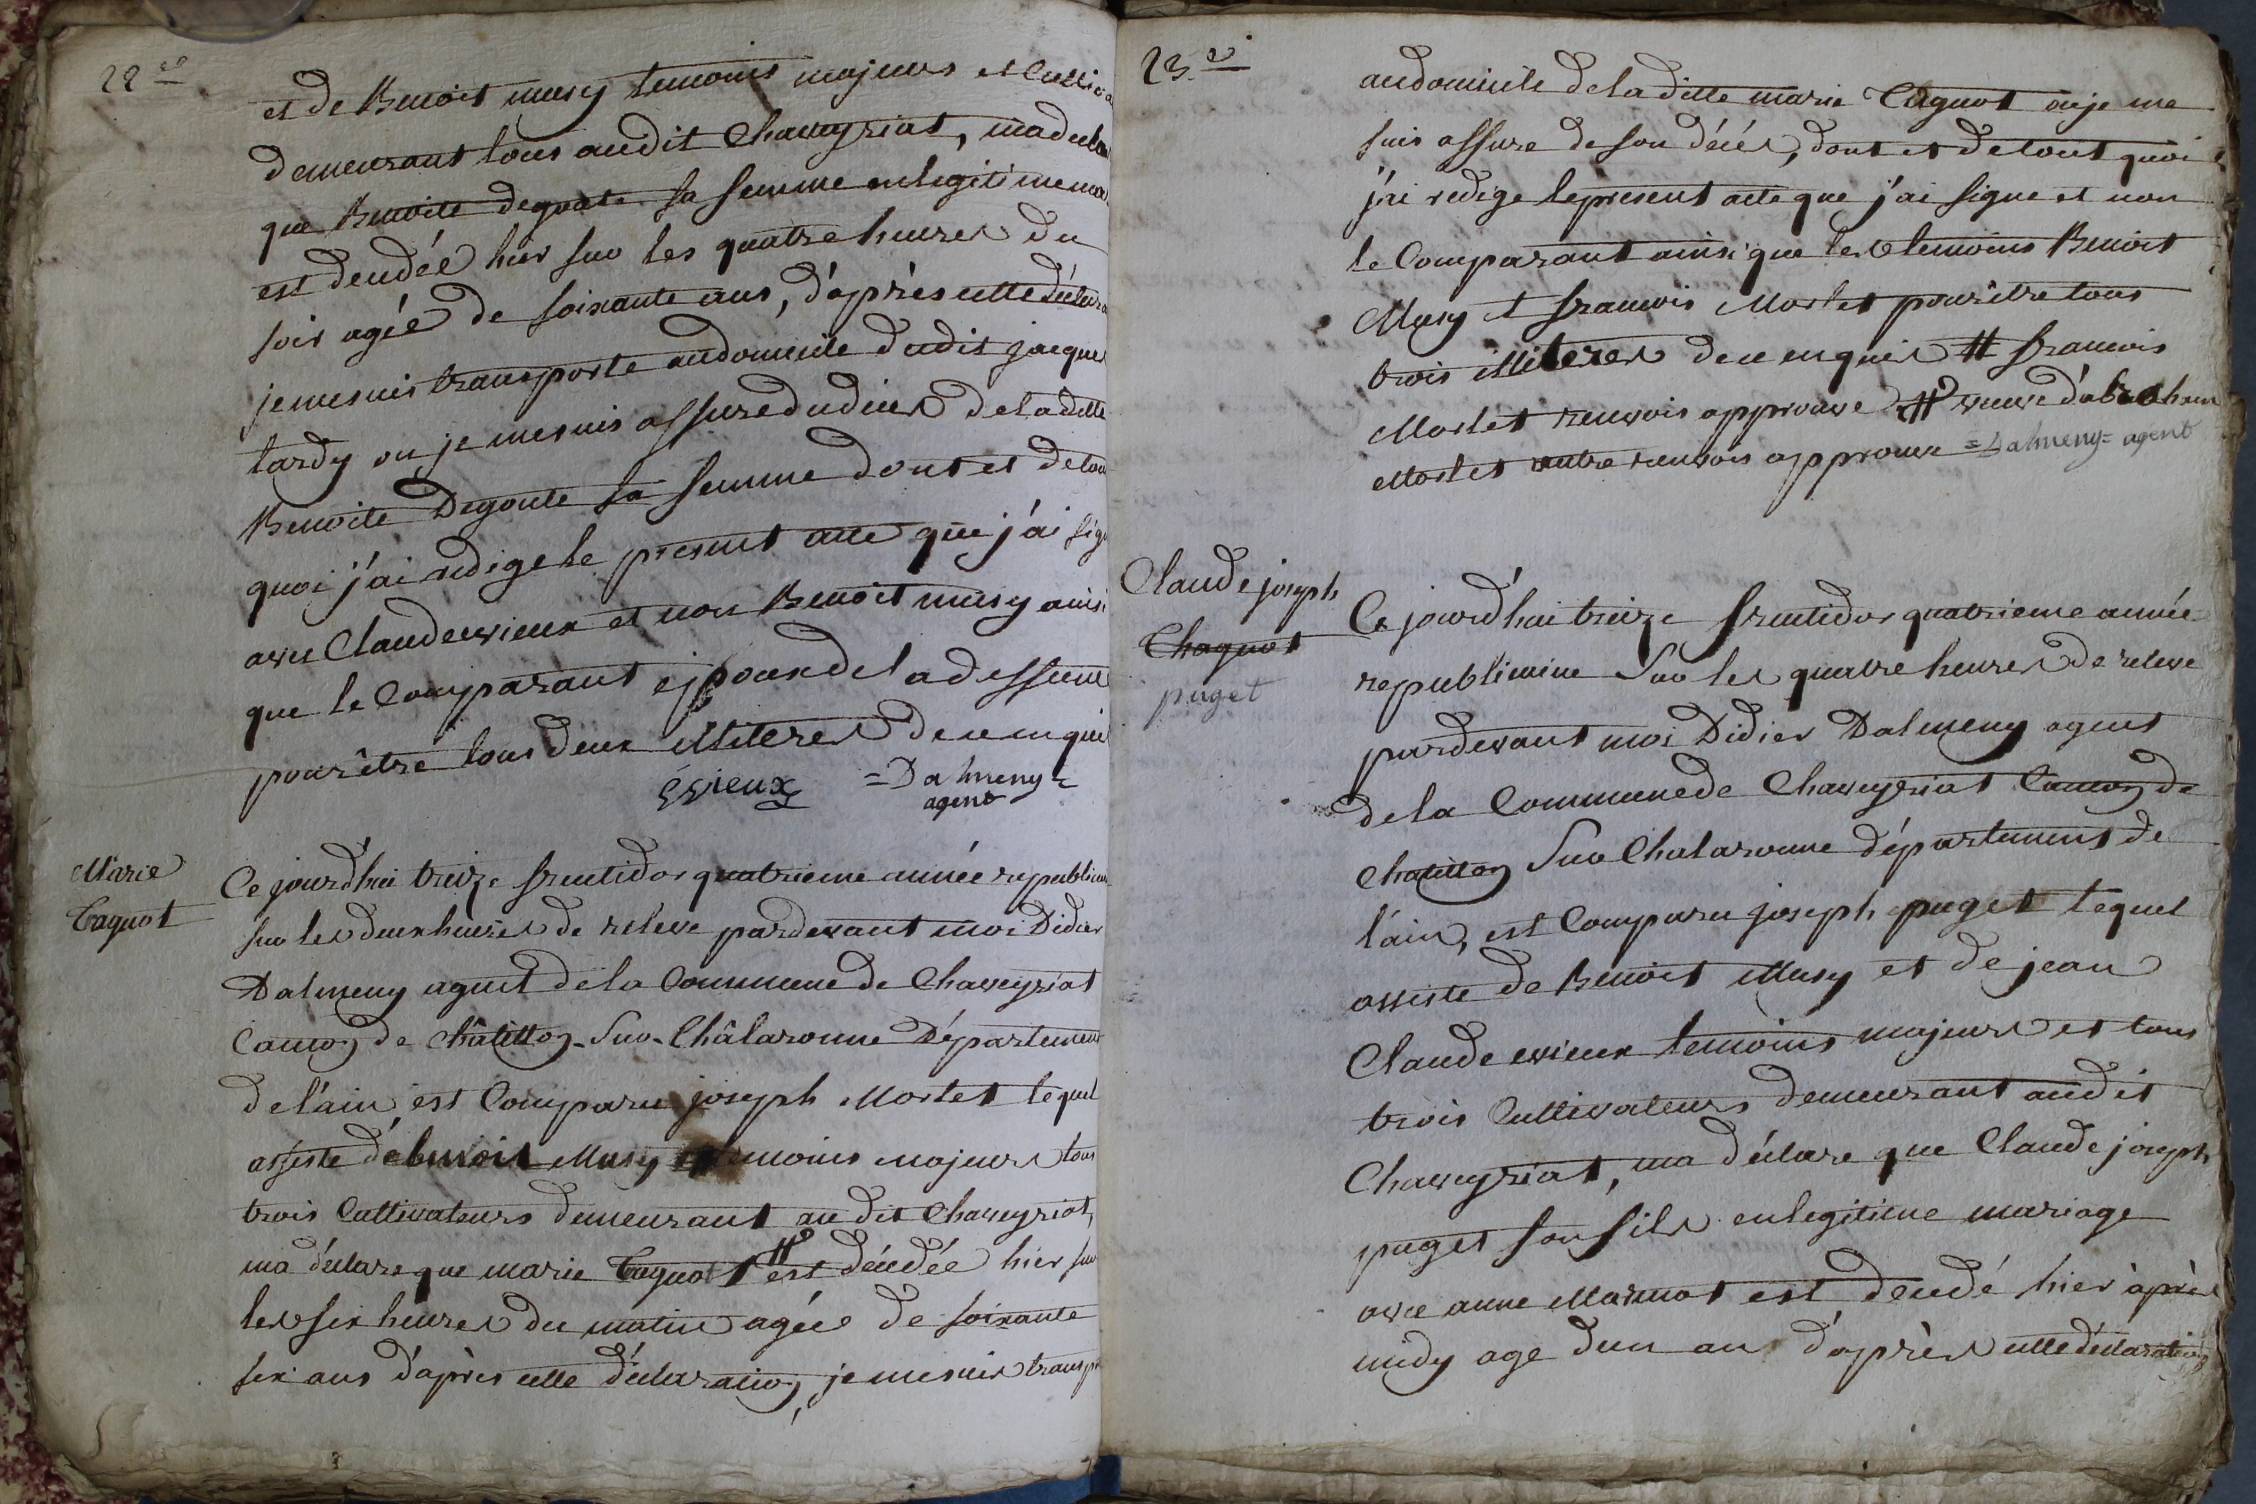 22e
et de Benoit musy temoins majeurs et cultiva
demeurant tous audit Chaveyriat, ma declar
que Benoite degoute sa femme en legitime ma
est deucdée hier sur les quatre heures du
soir agée de soixante ans, d'après cette déclara
je me suis transporte au domicile dudit jacque
tardy ou je me suis assure du dices de la ditte
Benoite Degoute sa femme dont et de tou
quoi j'ai redige le present acte que j'ai sig
avec Claude evieux et non Benoit musy ainsi
que le Comparant epoux de la deffunte
pour être tous deux illiteres de ce enquis
Evieux =Dalmeny=
agent
Marie
Caguot
Ce jourd'hui treize fructidor quatrieme année republicaine
sur les deux heures de releve pardevant moi Didier
Dalmeny agent de la Commune de Chaveyriat
Canton de Châtillon-Sur-Châlaronne Département
de l'ain est Comparu joseph Morlet lequel
assiste de benoit Musy temoins majeurs tous
trois Cultivateurs demeurant au dit Chaveyriat,
ma déclare que marie Caguot # est décédée hier sur
les six heures du matin agée de soixante
six ans d'après cette déclaration, je me suis transp
23e
au domicile de la ditte marie Caguot ou je me
suis assure de son décès, dont et de tout quoi
j'ai redige le present acte que j'ai signe et non
le Comparant ainsi que les temoins Benoit
Musy et francois Morlet pour être tous
trois illiteres de ce enquis # francois
Morlet renvois approuve # veuve d'abraham
Morlet autre renvois approuve =Dalmeny= agent
Claude joseph
Chaguot
puget
Ce jourd'hui treize fructidor quatrieme année
republicaine Sur les quatre heures de releve
pardevant moi Didier Dalmeny agent
de la Commune de Chaveyriat Canton de
Chatillon Sur Chalaronne département de
l'ain, est Comparu joseph puget lequel
assiste de Benoit Musy et de jean
Claude evieux temoins majeurs et tous
trois Cultivateurs demeurant audit
Chaveyriat, ma déclare que Claude joseph
puget son fils en legitime mariage
avec anne Marmot est decedé hier après
midy age dun an d'après cette déclaration